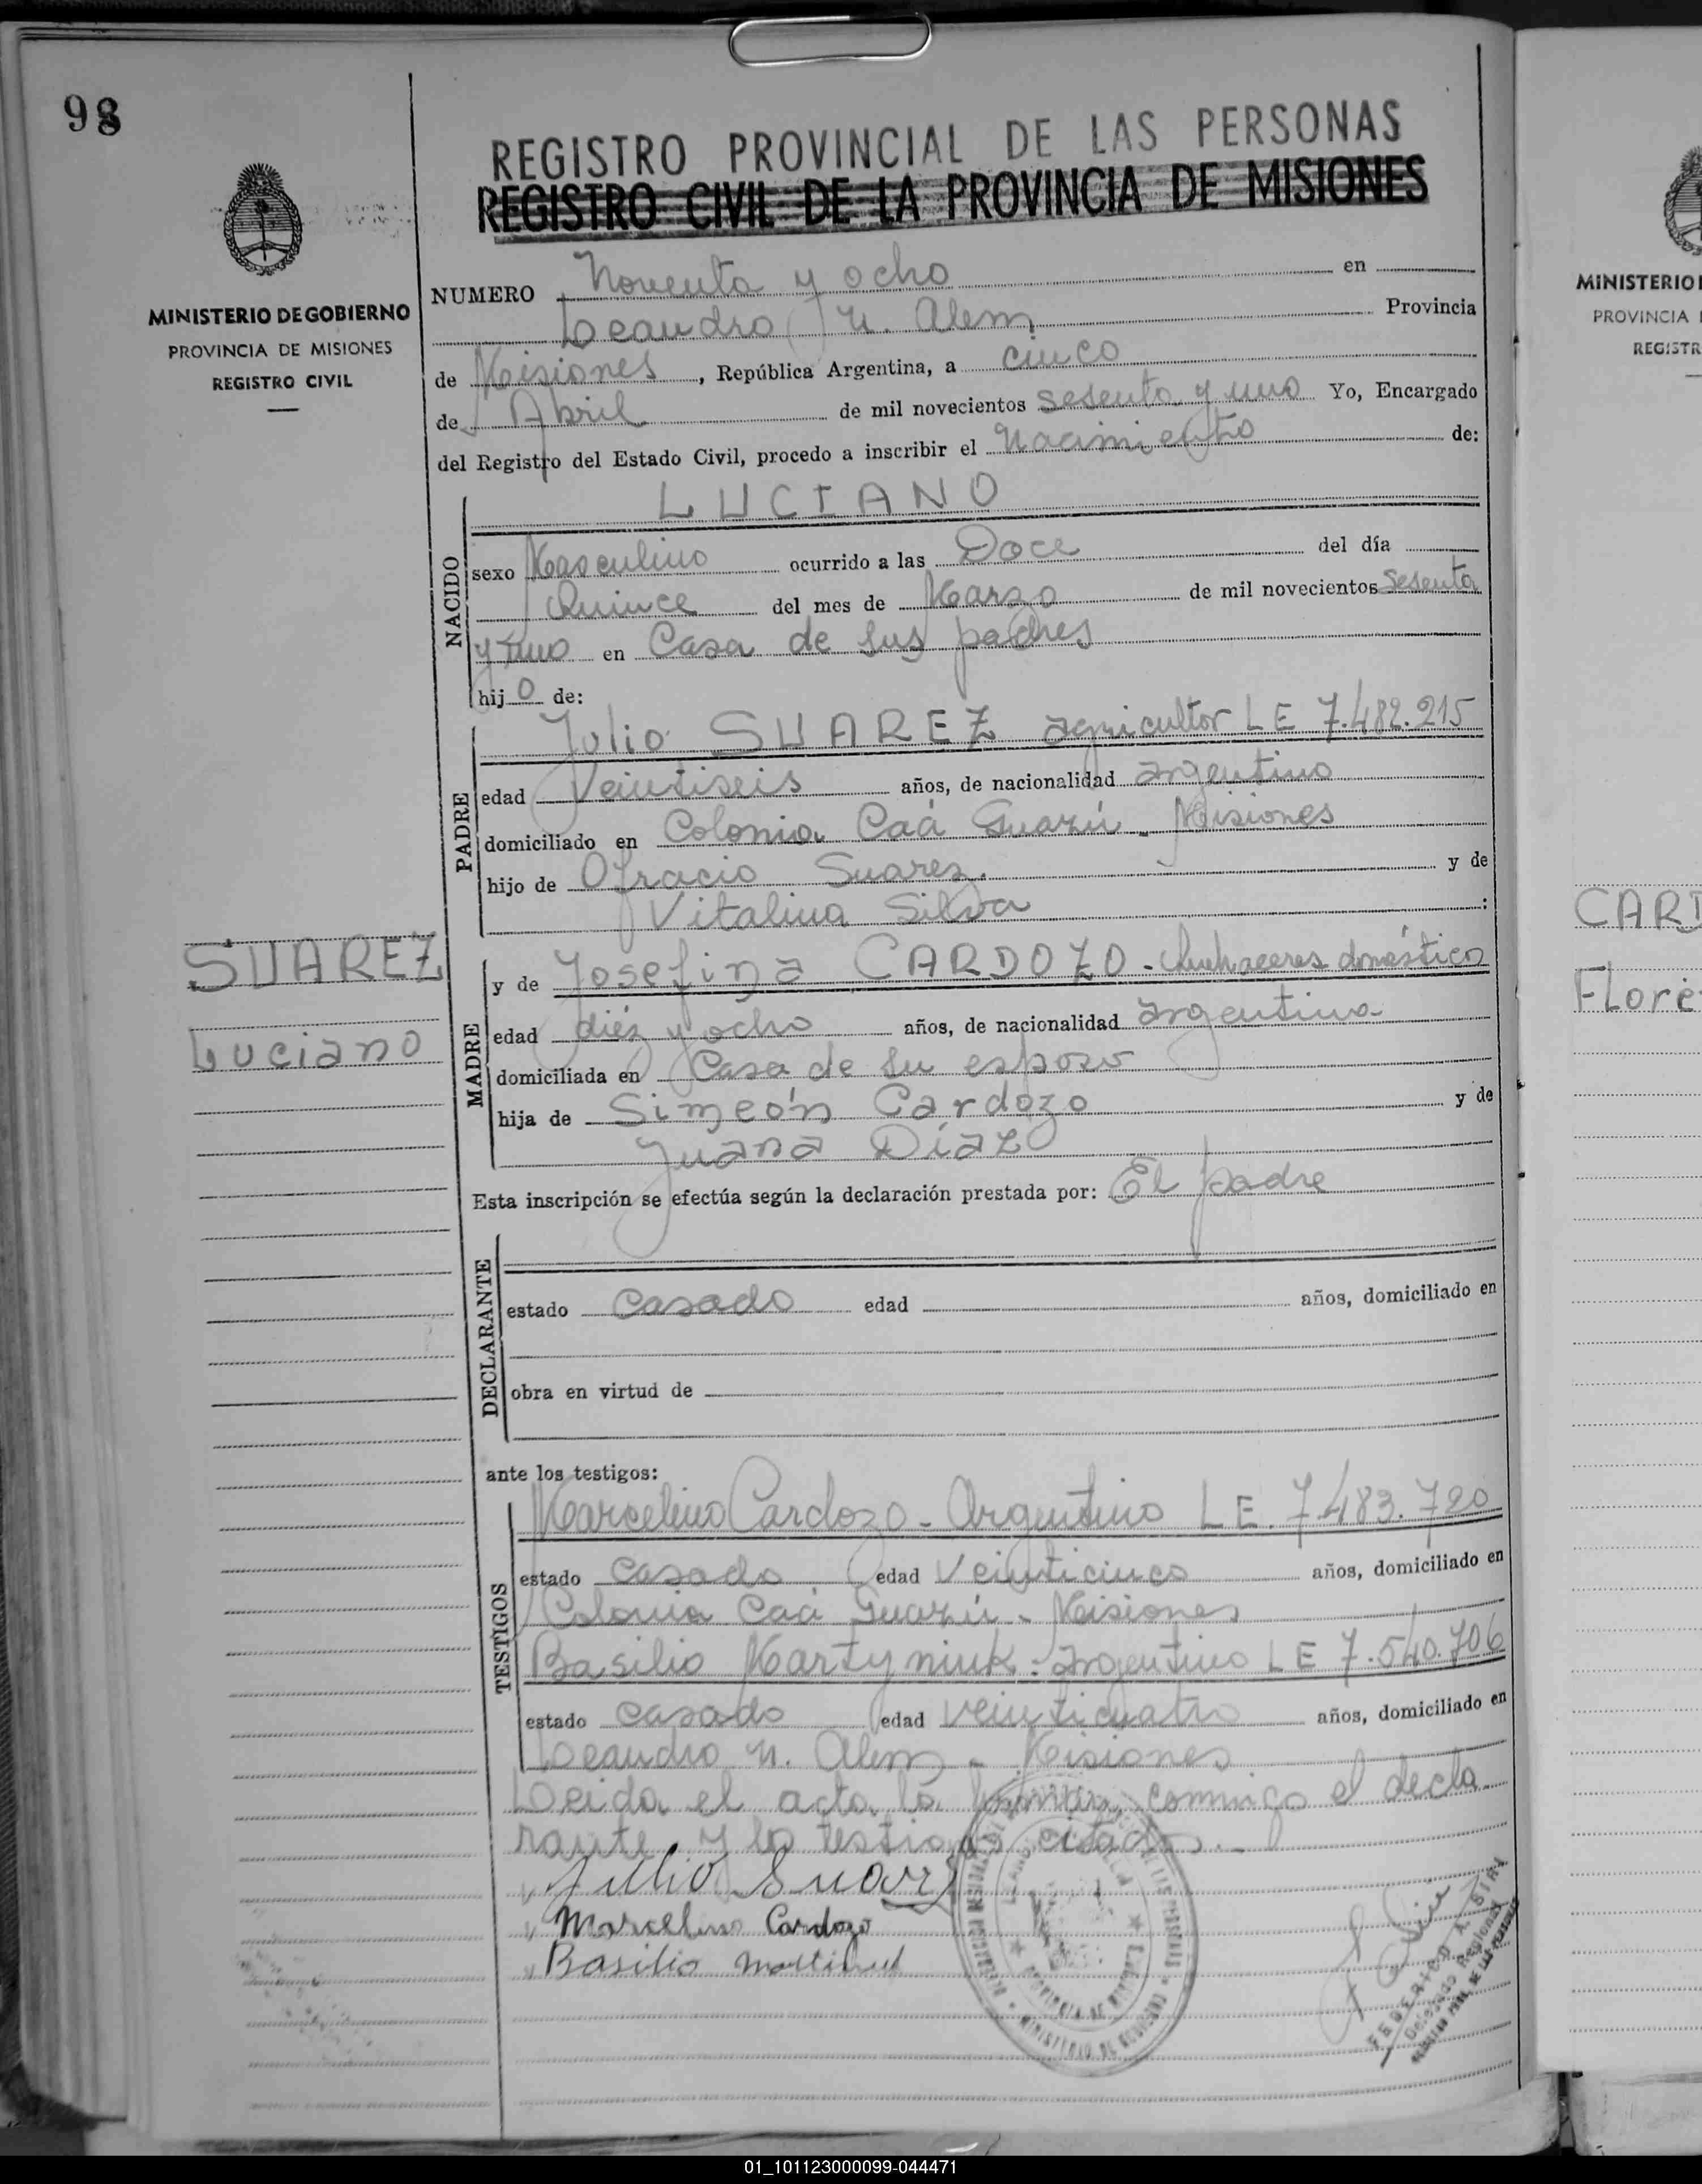 98
MINISTERIO DE GOBIERNO
PROVINCIA DE MISIONES
REGISTRO CIVIL
REGISTRO PROVINCIAL DE LAS PERSONAS
REGISTRO CIVIL DE LA PROVINCIA DE MISIONES
NUMERO Noventa y ocho en
Leandro N. Alem Provincia
de Misiones, República Argentina, a cinco
de Abril de mil novecientos sesenta y uno Yo, Encargado
del Registro del Estado Civil, procedo a inscribir el Nacimiento de:
NACIDO
LUCIANO
sexo Masculino ocurrido a las Doce del día
Quince del mes de Marzo de mil novecientos sesenta
y uno en Casa de sus padres
hijo de:
PADRE
Julio SUAREZ agricultor LE 7.482.215
edad Veintiseis años, de nacionalidad argentino
domiciliado en Colonia Caá Guazú - Misiones
hijo de Ofracio Suarez. y de
Vitalina Silva :
SUAREZ
Luciano
MADRE
y de Josefina CARDOZO - Quehaceres doméstico
edad diéz y ocho años, de nacionalidad argentina
domiciliada en Casa de su esposo
hija de Simeón Cardozo y de
Juana Díaz
Esta inscripción se efectúa según la declaración prestada por: El padre
DECLARANTE
estado Casado edad años, domiciliado en
obra en virtud de
ante los testigos:
TESTIGOS
Marcelino Cardozo - Argentino LE. 7.483.720
estado Casado edad Veinticinco años, domiciliado en
Colonia Caá Guazú - Misiones
Basilio Martyniuk - argentino LE 7.540.706
estado Casado edad veinticuatro años, domiciliado en
Leandro N. Alem - Misiones
Leida el acta, la firman conmigo el decla
rante y lo testigos citados.-
Julio Suarez
Marcelino Cardozo
Basilio
PROVINCIA DE MISIONES
MINISTERIO DE GOBIERNO
FEDERICO A.
Delegado Regional
MINISTERIO
PROVINCIA
REGISTR
CARD
Flore
01_101123000099-044471